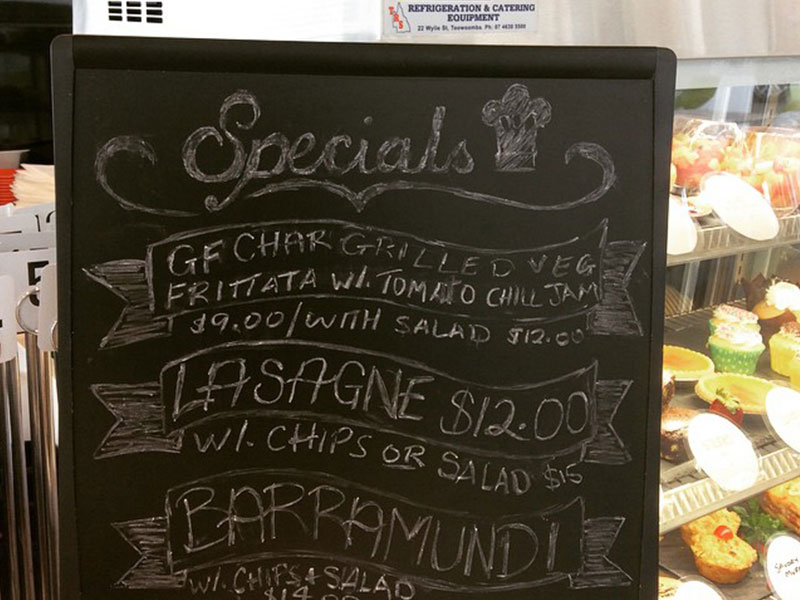 REFRIGERATION & CATERING
EQUIPMENT
22 Wylie St, Toowoomba. Ph: 07 4638 5500
Specials
GF CHAR GRILLED VEG
FRITTATA W/. TOMATO CHILL JAM
$9.00/WITH SALAD $12.00
LASAGNE $12.00
W/. CHIPS OR SALAD $15
BARRAMUNDI
W/. CHIPS & SALAD
5